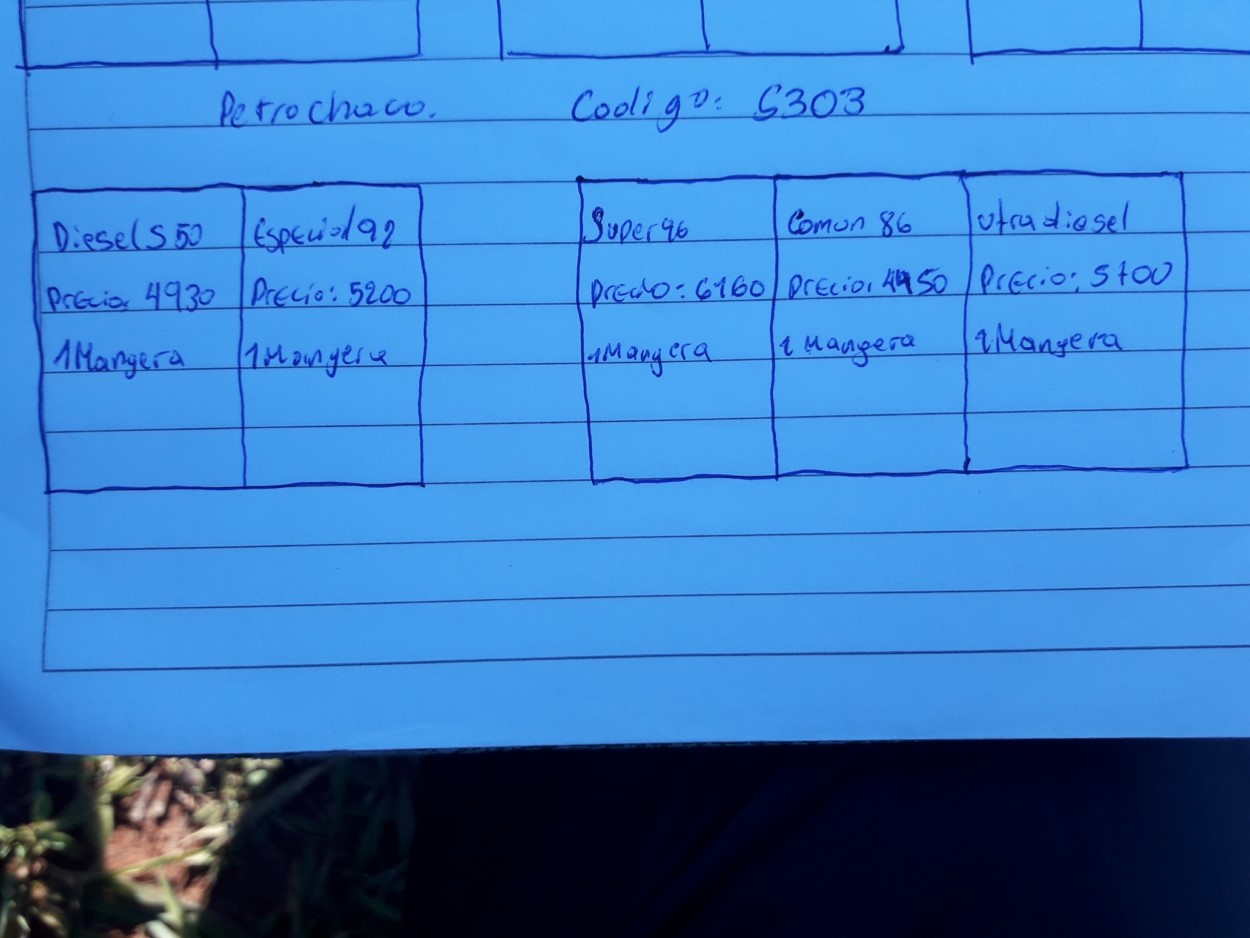 Petrochaco. Codigo: S303
Diesel S50 Especial 92 Super 96 Comun 86 utra diesel
Precio: 4930 Precio: 5200 Precio: 6160 Precio: 4450 Precio: 5700
1 Mangera 1 Mangera 1 Mangera 1 Mangera 1 Mangera